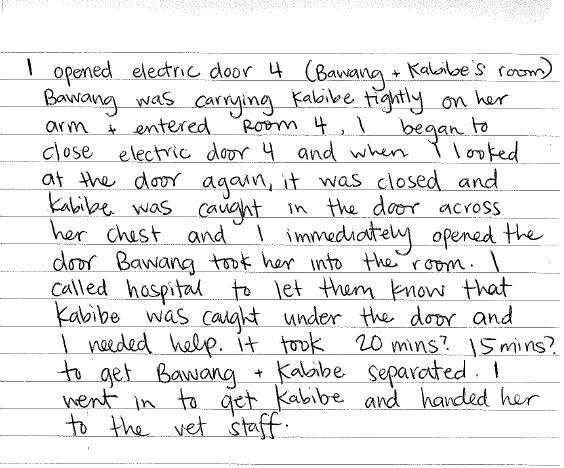 I opened electric door 4 (Bawang + Kabibe's room)
Bawang was carrying Kabibe tightly on her
arm + entered Room 4, I began to
close electric door 4 and when I looked
at the door again, it was closed and
Kabibe was caught in the door across
her chest and I immediately opened the
door Bawang took her into the room. I
called hospital to let them know that
Kabibe was caught under the door and
I needed help. it took 20 mins? 15 mins?
to get Bawang + Kabibe separated. I
went in to get Kabibe and handed her
to the vet staff.